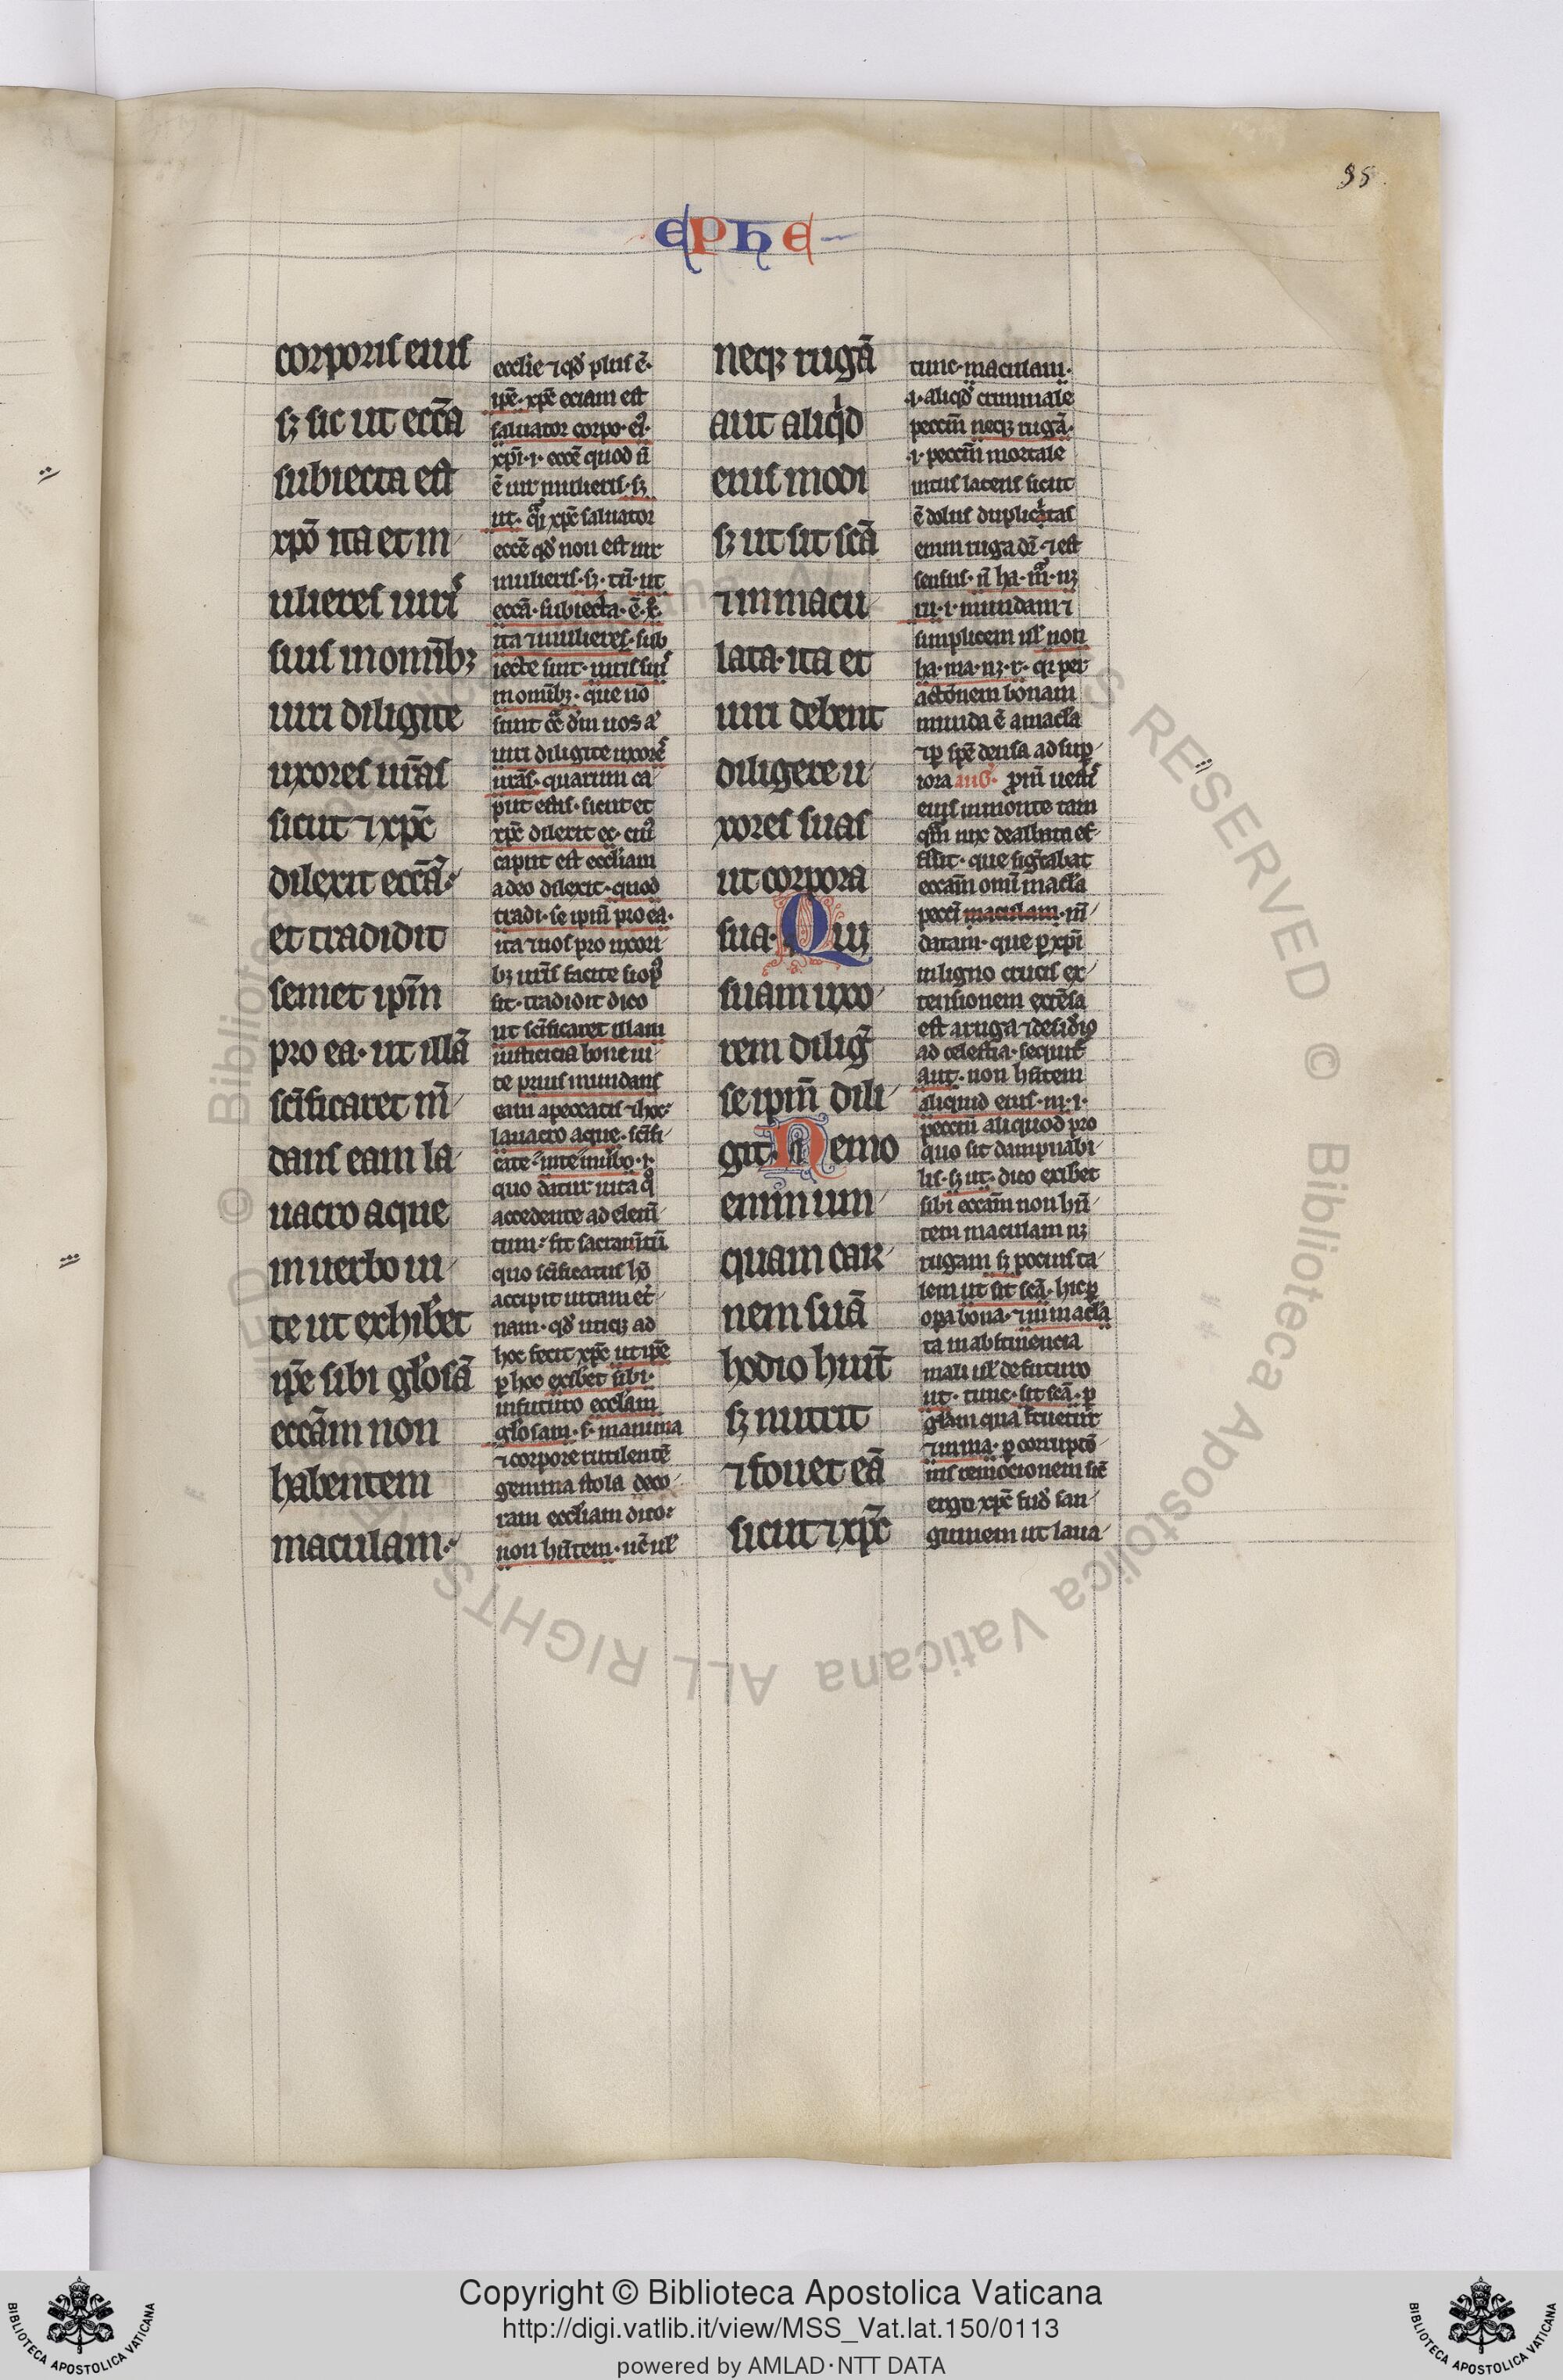 55
EPHE
corporis eius
sꝫ sic ut eccl̄a
subiecta est
xp̄o ita et m
ulieres uiris
suis in om̄ibꝫ
uiri diligite
uxores ur̄as
sicut ⁊ xp̄c
dilexit ecc̄am
et tradidit
semet ip̄m
pro ea· ut illā
sc̄ificaret m̄
dans eam la
uacro aque
in uerbo ui
te ut exhibet
ip̄e sibi gl̄osā
ecc̄am non
habentem
maculam
ecclie ⁊ qd̄ plus ē·
ip̄e· xp̄c eciam est
saluator corpo· ei·
xp̄i· i· ecc̄e quod n̄
ē uir mulieris· sꝫ
ut· xp̄c saluator
ecc̄e qd̄ non est uir
mulieris· sꝫ· tn̄· ut
ecc̄a· subiecta· ē· x̄·
ita ⁊ mulieres· sub
iecte sint· uiris suis
in om̄ibꝫ· que nō
sunt dm̄ uos a
uiri diligite uxores
ur̄as· quarum ca
put estis· sicut et
xp̄c dilexit ec· cui
caput est eccl̄iam
adeo dilexit· quod
tradi· se ip̄m pro ea·
ita ⁊ uos pro uxori
bꝫ ur̄is facite si op̄
sit· tradidit dico
ut sc̄ificaret illam
iusticicia bone ui
te prius mundans
eam a peccatis ⁊ hoc
lauacro aque· sc̄ifi
cate
quo datur uita q
accedente ad elem̄
tum· fit sacram̄tū
quo sc̄ificatus hō
accipit uitam et̄
nam· qd̄ utiqꝫ ad
hoc fecit xp̄c ut ip̄e
ꝑ hoc exibet sibi·
in futuro eccl̄am
gl̄osam· s· in anima
⁊ corpore rutilentē
gemma stola deco
ram eccl̄iam dico
non hn̄tem· nc̄ ul̄
neqꝫ rugā
aut aliqd
eius modi
sꝫ ut sit sc̄a
⁊ inmacu
lata· ita et
uiri debent
diligere u
xores suas
ut corpora
sua· Qui
suam uxo
rem diliḡ
se ip̄m dili
git· Nemo
enim um
quam car
nem suā
hodio huit̄
sꝫ nutrit
⁊ fouet eā
sicut ⁊ xp̄c
tunc· maculam·
·i· aliqd̄ criminale
pecc̄m neqꝫ rugā·
·i· pecc̄m mortale
intus latens sicut
ē dolus duplicitas
enim ruga dr̄ ⁊ est
sensus· n̄ ha· m̄· nꝫ
ru· i· mundam ⁊
simplicem ul̄ non
ha· ma· nꝫ· r· qꝛ per
actōnem bonam
munda ē a mac̄la
⁊ ꝑ spē densa ad supꝑ
iora auḡ· prim̄ uestis
eius in monte tam
qm̄ nix dealbata ef
fulsit· que siḡtabat
ecc̄am omī macl̄a
pecc̄i maculam· m̄
datam· que ꝑ xp̄i
in ligno crucis ex
tensionem extēsa
est a ruga ⁊ desid̄io
ad celestia· sequit̄
aut· non hn̄tem
aliquid eius· m· i·
pecc̄m aliquod pro
quo sit dampnabi
lis· sꝫ ut· dico exibet
sibi ecc̄am non hn̄
tem maculam nꝫ
rugam sꝫ pocius ta
lem ut sit sc̄a· hic ꝑ
oꝑa bona· ⁊ inmacl̄a
ta in abstinencia
mali ul̄ de futuro
ut· tunc· sit sc̄a· ꝑ
gl̄am qua fruetur
⁊ inma· ꝑ corruptō
nis remocionem sic̄
ergo xp̄c fud̄ san
guinem ut laua
Copyright © Biblioteca Apostolica Vaticana
http://digi.vatlib.it/view/MSS_Vat.lat.150/0113
powered by AMLAD·NTT DATA
BIBLIOTECA APOSTOLICA VATICANA
BIBLIOTECA APOSTOLICA VATICANA